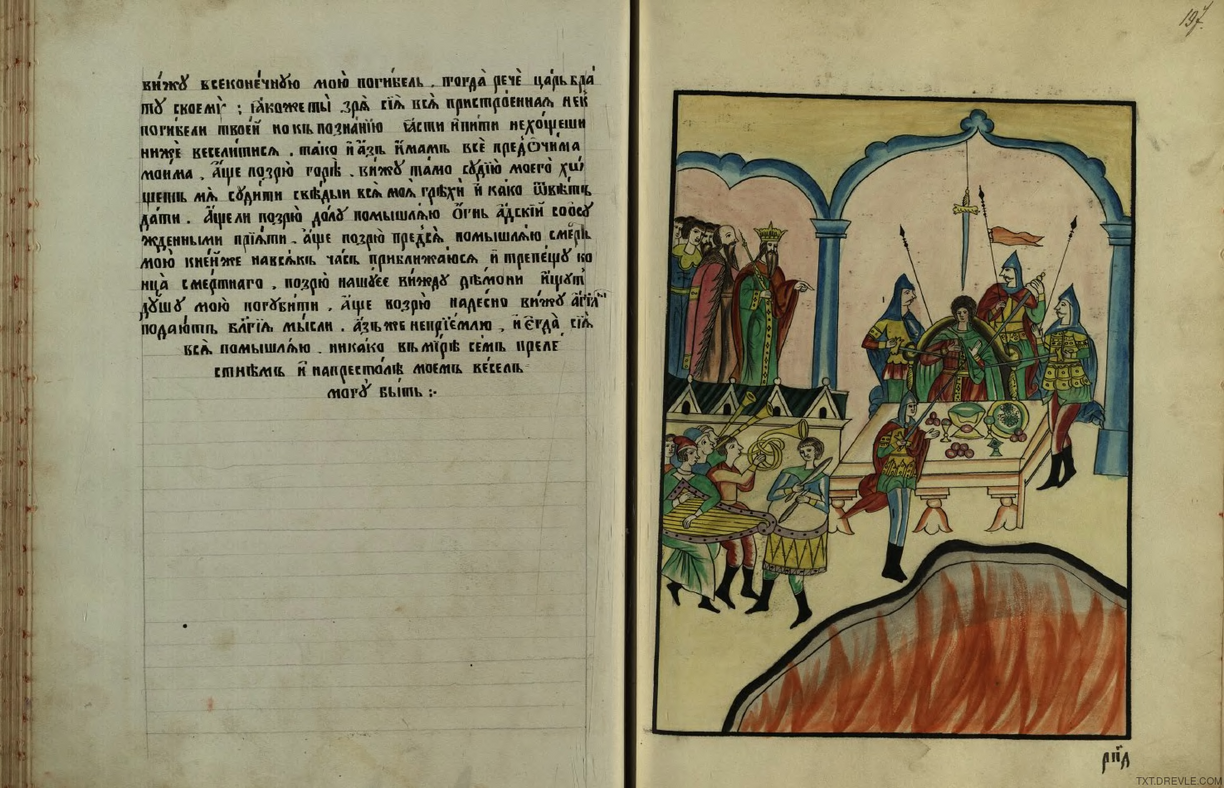 ви́жꙋ всеконе́чнꙋю мою̀ поги́бель . тогда̀ речѐ ца́рь бра
тꙋ своемꙋ̀ ; ꙗ҆́коже ты̀ зря̀ сїѧ̑ всѧ̑ пристро́енная не къ
поги́бели твое́й но къ позна́нїю ꙗ҆́сти и҆ пи́ти не хо́щеши
нижѐ весели́тисѧ . та́ко и҆ а҆́зъ и҆́мамъ всѐ пред̾ ѻ҆чи́ма
мои́ма . а҆́ще позрю̀ горѣ̀ . ви́жꙋ та́мо сꙋдїю̀ моего̀ хо́
щетъ мѧ̀ сꙋди́ти свѣ́дыи всѧ̑ моѧ̑ грѣхѝ и҆ ка́ко ѿвѣ́тъ
да́ти . а҆́щели позрю̀ до́лꙋ помышлѧ́ю ѻ҆́гнь а҆́дскїй со ѡ҆сꙋ
жде́нными прїѧ́ти . а҆́ще позрю̀ пред̾сѧ̀ помышлѧ́ю сме́рть
мою̀ к не́йже на всѧ́къ ча́съ приближа́юсѧ и҆ трепе́щꙋ ко
нца̀ сме́ртнаго . позрю̀ на шꙋ́ее ви́ждꙋ де́мони и҆́щꙋтъ
дꙋ́шꙋ мою̀ погꙋби́ти . а҆́ще возрю̀ надесно̀ ви́жꙋ а҆́гг҃ли
подаю́тъ бл҃гїѧ мы́сли . а҆́зъ же непрїе́млю , и҆ є҆гда̀ сїѧ̑
всѧ̑ помышлѧ́ю . ника́ко въ мі́рѣ се́мъ преле́
стнѣмъ и҆ на престо́лѣ мое́мъ ве́селъ
могꙋ̀ бы́ть :·
197
рпд
TXT.DREVLE.COM